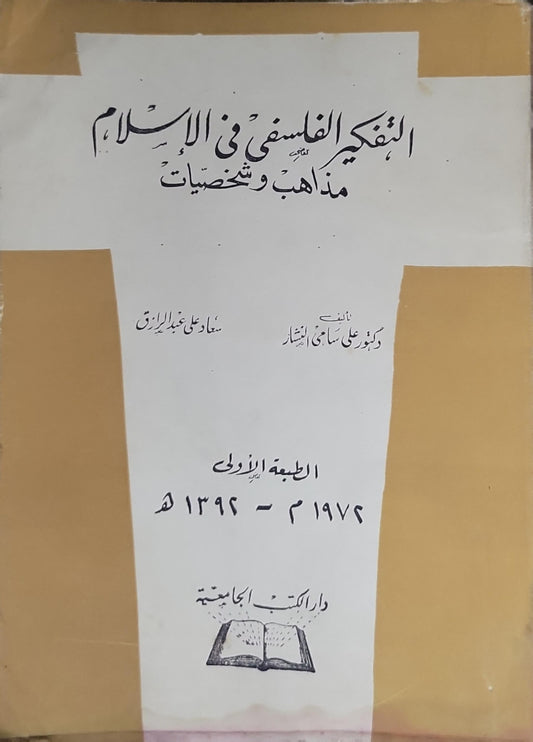 التفكير الفلسفى فى الإسلام
مذاهب وشخصيات
تأليف
دكتور على سامى النشار
سعاد على عبد الرازق
الطبعة الأولى
١٩٧٢ م - ١٣٩٢ ه
دار الكتب الجامعية